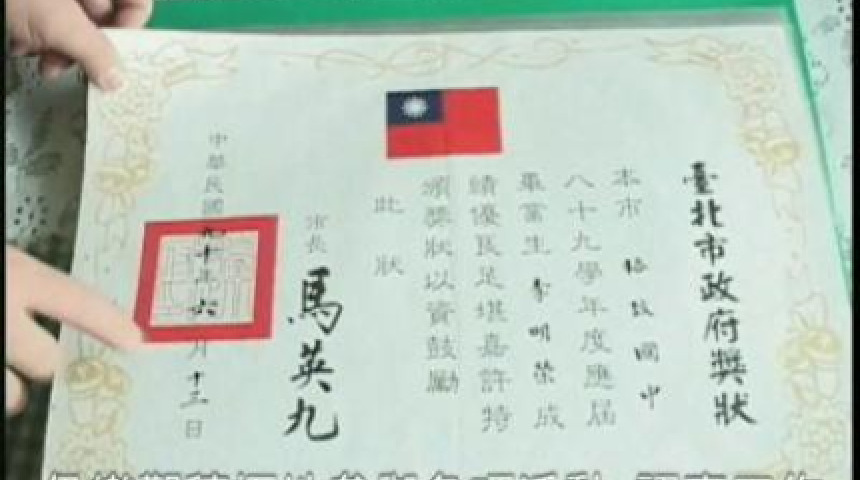 臺北市政府獎狀
本市 格致國中
八十九學年度應屆
畢業生 李明榮 成
績優良足堪嘉許特
頒獎狀以資鼓勵
此狀
市長 馬英九
中華民國九十年六月十三日